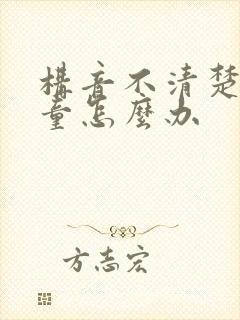 構音不清楚
童怎麼办
方志宏